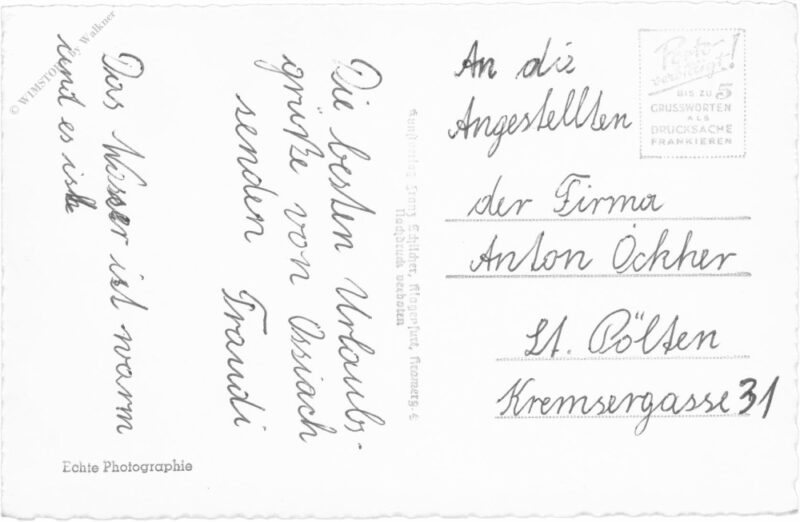 © WIMSTORE by Walkner
Die besten Urlaubs-
grüße von Ossiach
senden
Traudi
Das Wasser ist warm
und es ist
Echte Photographie
Kunstverlag Franz Schilcher, Klagenfurt,
Nachdruck verboten
An die
Angestellten
der Firma
Anton Öckher
St. Pölten
Kremsergasse 31
Porto
verbilligt!
BIS ZU 5
GRUSSWORTEN
ALS
DRUCKSACHE
FRANKIEREN